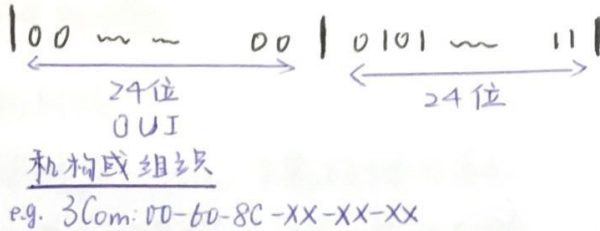 00 ~ ~ 00 | 0101 ~ 11
24位 24位
OUI
机构或组织
e.g. 3Com: 00-60-8C-XX-XX-XX